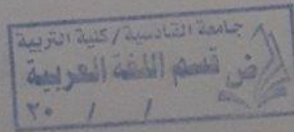 جامعة القادسية / كلية التربية
قسم اللغة العربية
٢٠ / /